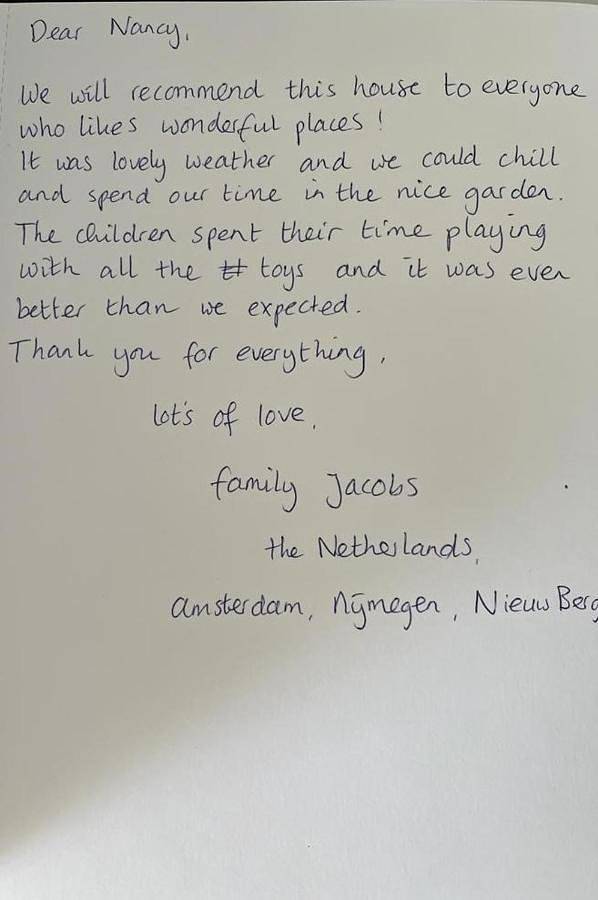 Dear Nancy,
We will recommend this house to everyone
who likes wonderful places!
It was lovely weather and we could chill
and spend our time in the nice garden.
The children spent their time playing
with all the toys and it was even
better than we expected.
Thank you for everything,
lot's of love,
family Jacobs
the Netherlands,
Amsterdam, Nijmegen, Nieuw Berg